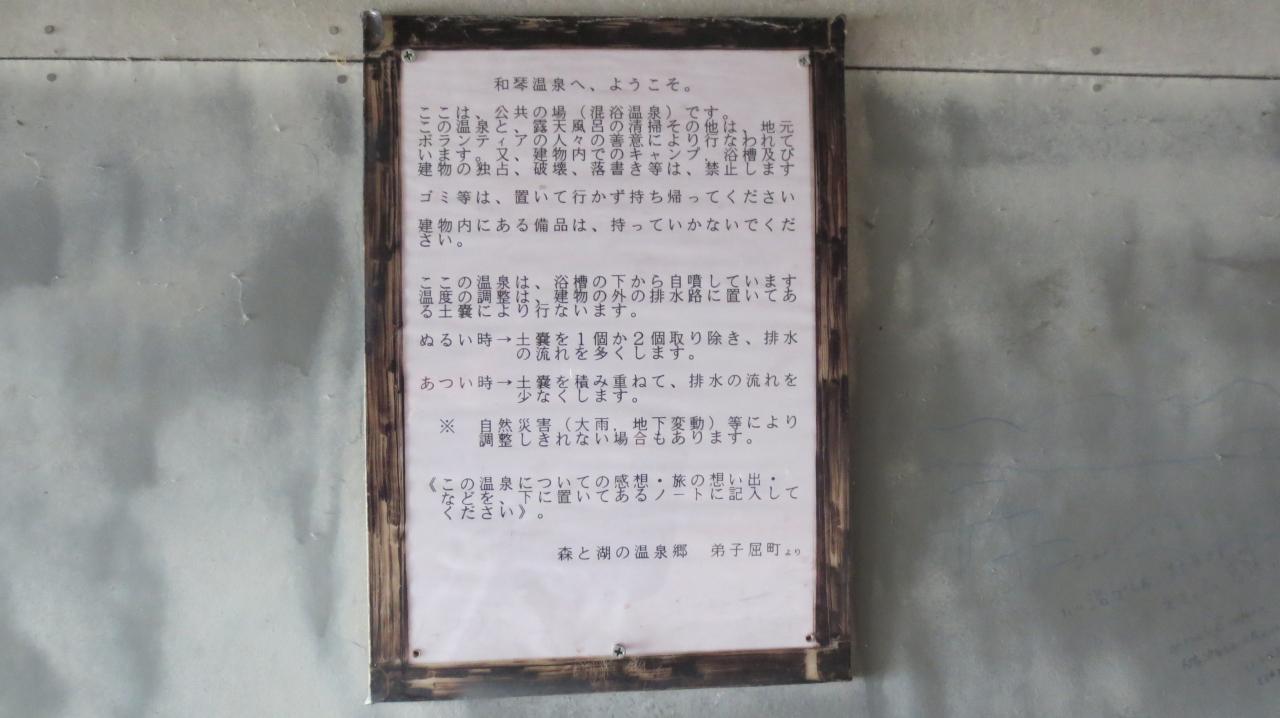 和琴温泉へ、ようこそ。
ここは、公共の場（混浴温泉）です。
この温泉と、露天風呂の清掃その他は、地元
ボランティアの人々の善意により行なわれて
います。又、建物内でのキャンプ、浴槽及び
建物の独占、破壊、落書き等は、禁止します
ゴミ等は、置いて行かず持ち帰ってください
建物内にある備品は、持っていかないでくだ
さい。
ここの温泉は、浴槽の下から自噴しています
温度の調整は、建物の外の排水路に置いてあ
る土嚢により行ないます。
ぬるい時→土嚢を１個か２個取り除き、排水
の流れを多くします。
あつい時→土嚢を積み重ねて、排水の流れを
少なくします。
※　自然災害（大雨．地下変動）等により
調整しきれない場合もあります。
《この温泉についての感想・旅の想い出・
などを、下に置いてあるノートに記入して
ください》。
森と湖の温泉郷　弟子屈町より